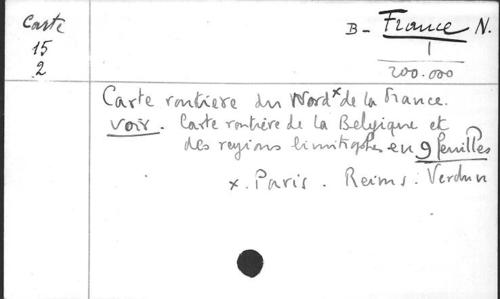 Carte
15
2
B - France N.
1
200.000
Carte routière du Nord x de la France.
voir. Carte routière de la Belgique et
des regions limitrophes en 9 feuilles
x. Paris. Reims. Verdun